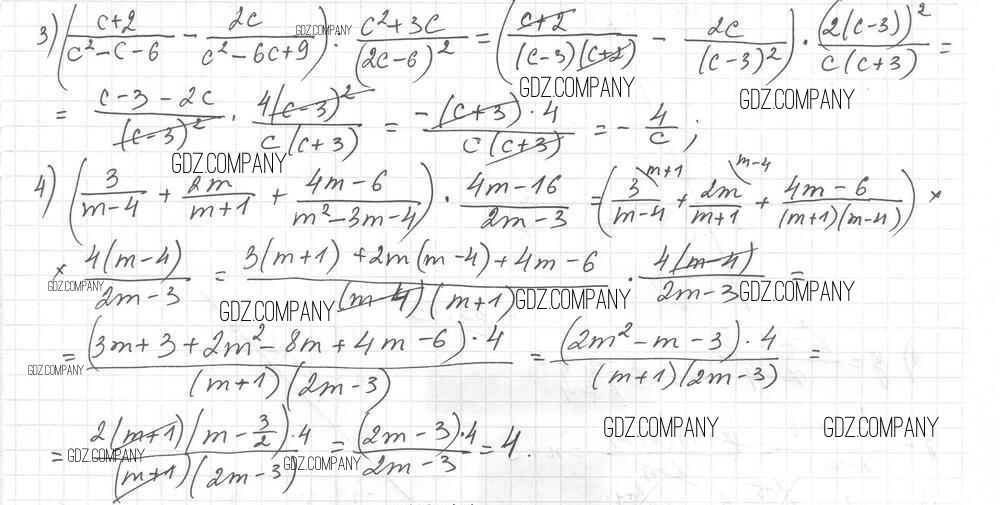 3) ((c+2)/(c²-c-6) - 2c/(c²-6c+9)) : (c²+3c)/(2c-6)² = ((c+2)/((c-3)(c+2)) - 2c/(c-3)²) · (2(c-3))²/(c(c+3)) =
= (c-3-2c)/(c-3)² · 4(c-3)²/(c(c+3)) = -(c+3)·4/(c(c+3)) = -4/c ;
4) (3/(m-4) + 2m/(m+1) + (4m-6)/(m²-3m-4)) · (4m-16)/(2m-3) = (3\m+1/(m-4) + 2m\m-4/(m+1) + (4m-6)/((m+1)(m-4))) ×
× 4(m-4)/(2m-3) = (3(m+1)+2m(m-4)+4m-6)/((m-4)(m+1)) · 4(m-4)/(2m-3) =
= (3m+3+2m²-8m+4m-6)·4/((m+1)(2m-3)) = (2m²-m-3)·4/((m+1)(2m-3)) =
= 2(m+1)(m-3/2)·4/((m+1)(2m-3)) = (2m-3)·4/(2m-3) = 4.
GDZ.COMPANY
GDZ.COMPANY
GDZ.COMPANY
GDZ.COMPANY
GDZ.COMPANY
GDZ.COMPANY
GDZ.COMPANY
GDZ.COMPANY
GDZ.COMPANY
GDZ.COMPANY
GDZ.COMPANY
GDZ.COMPANY
GDZ.COMPANY